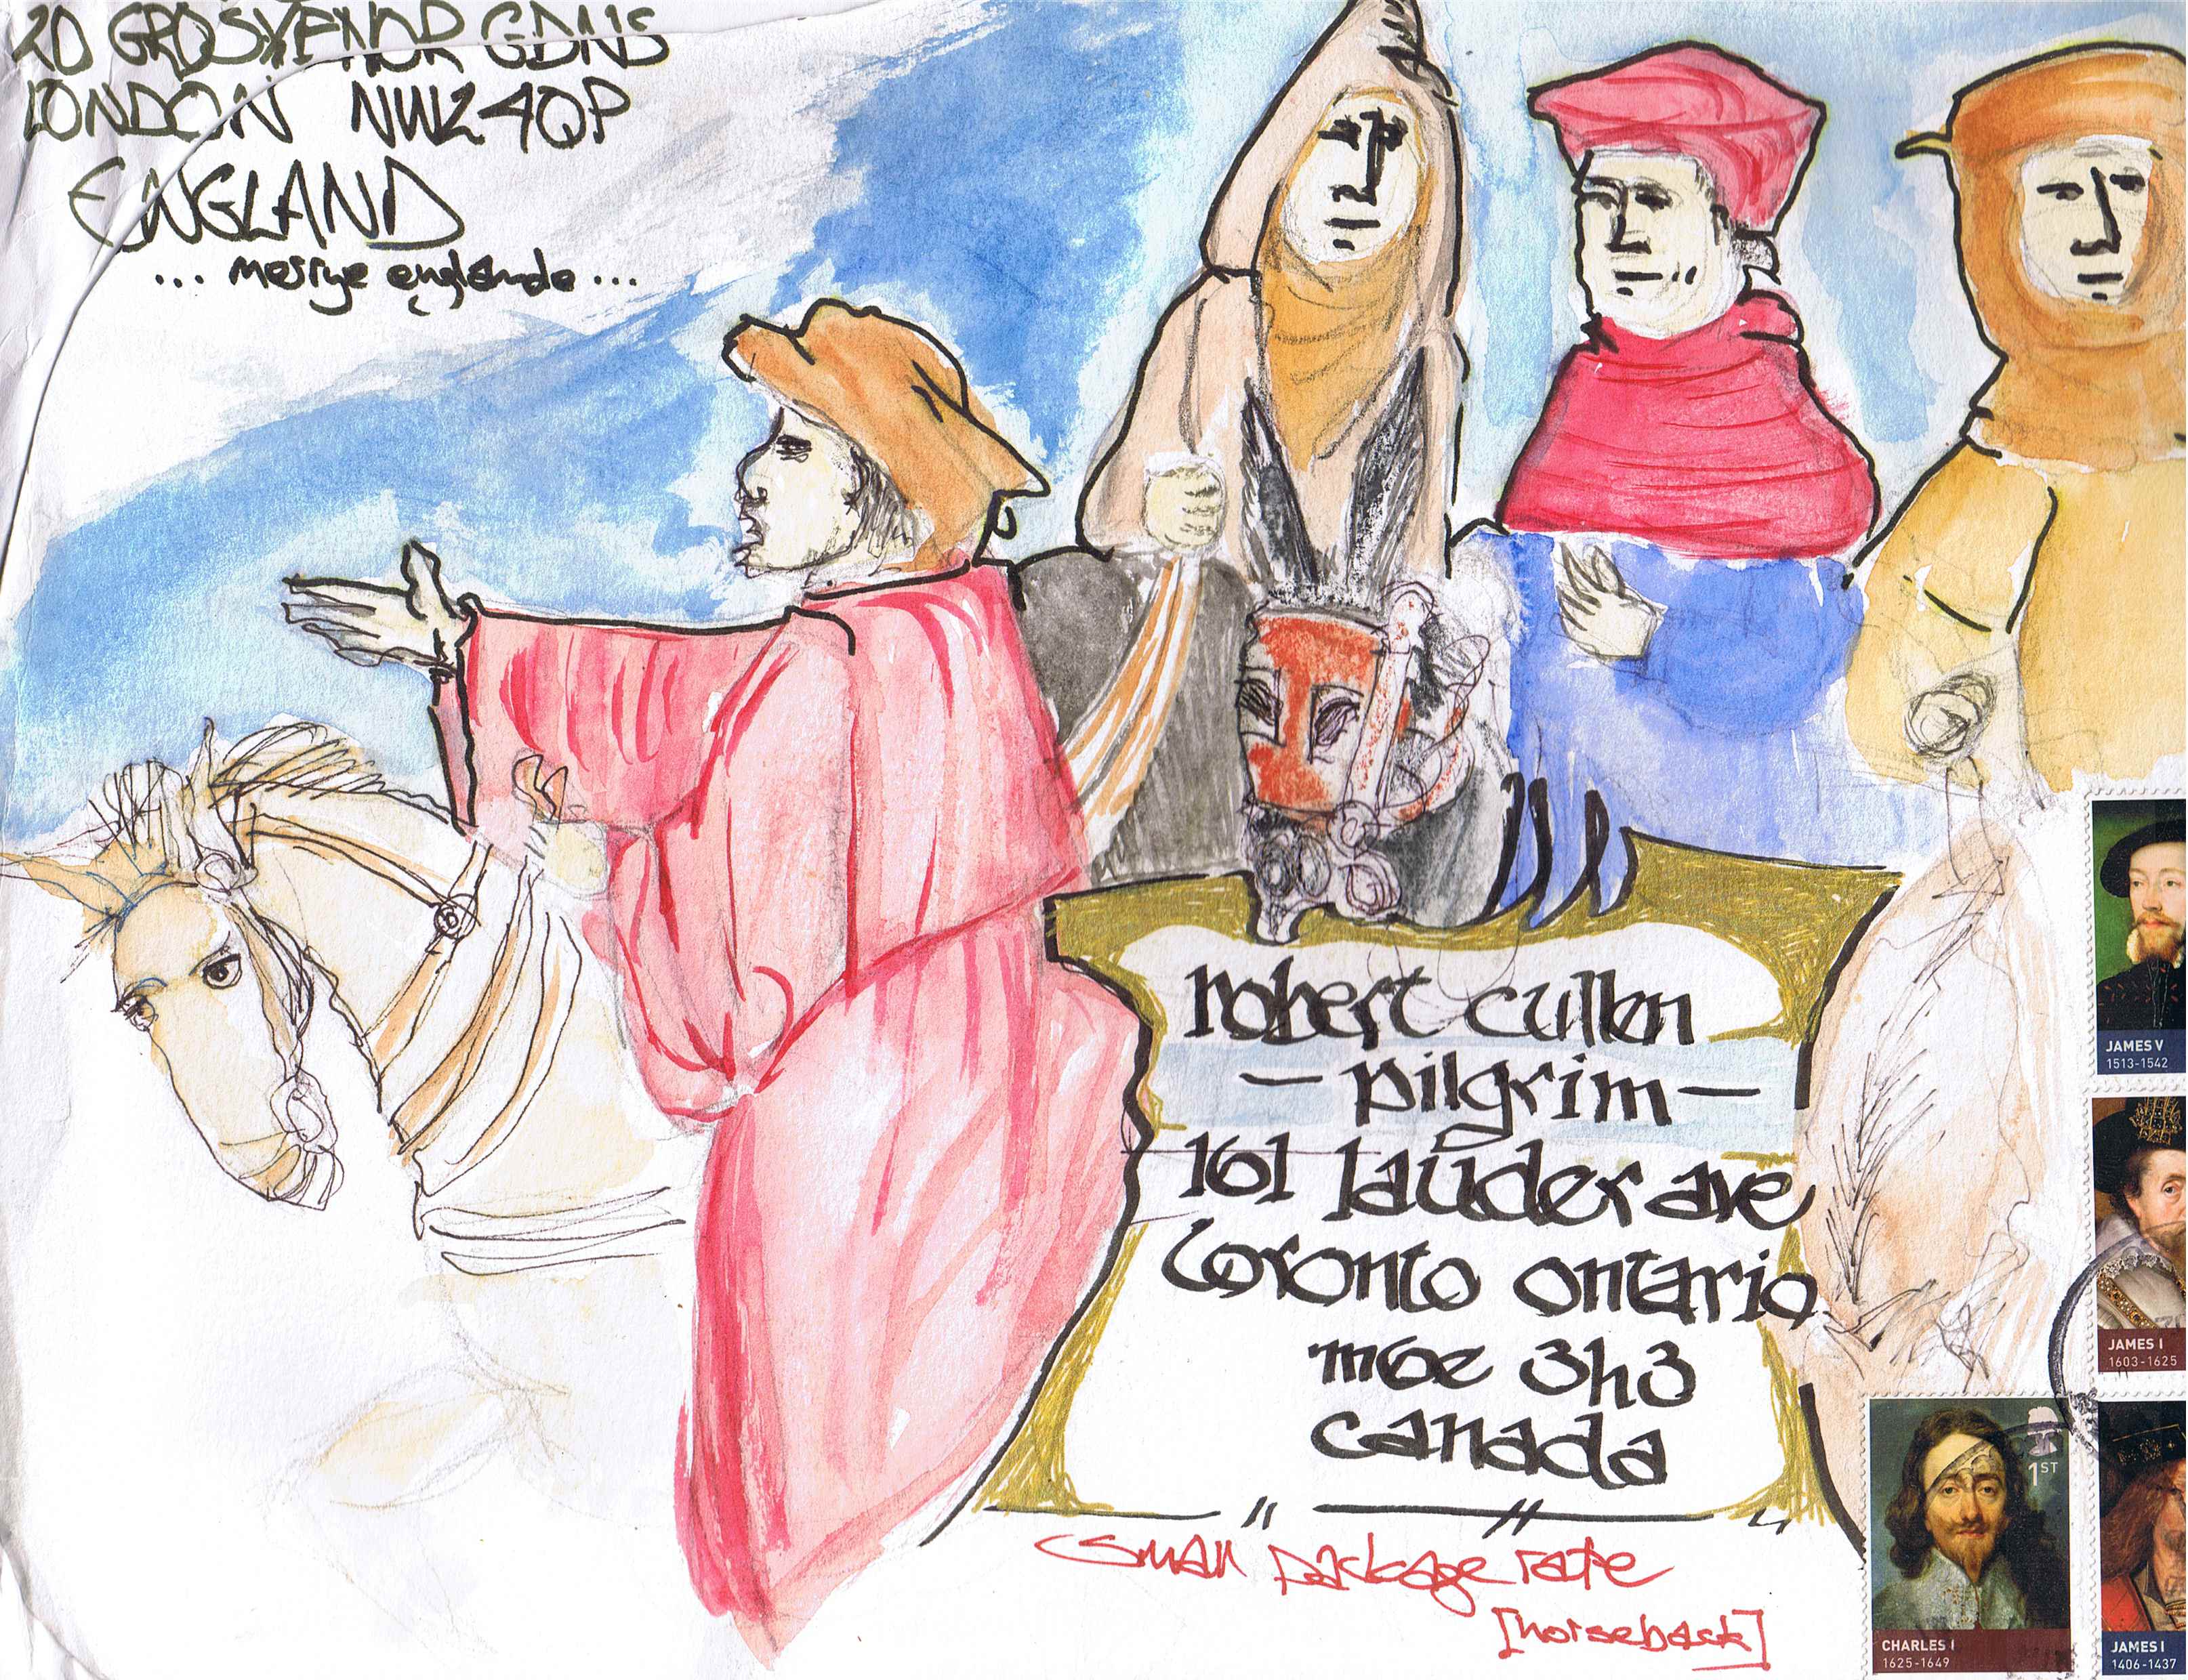 20 GROSVENOR GDNS
LONDON NW2 4QP
ENGLAND
... merrye englande ...
robert cullen
— pilgrim —
161 lauder ave
toronto ontario
m6e 3h3
canada
small package rate
[horseback]
JAMES V
1513-1542
JAMES I
1603-1625
1ST
CHARLES I
1625-1649
JAMES I
1406-1437